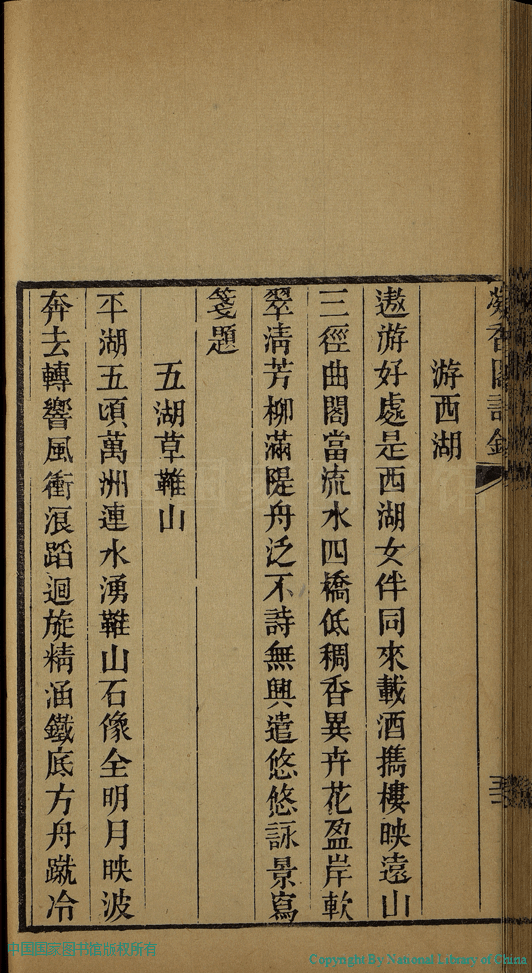 凝香閣詩鈔
游西湖
遨游好處是西湖女伴同來載酒攜樓映遠山
三徑曲閣當流水四橋低稠香異卉花盈岸軟
翠清芳柳滿隄舟泛不詩無興遣悠悠詠景寫
箋題
五湖草鞋山
平湖五頃萬洲連水湧鞋山石像全明月映波
奔去轉響風衝浪蹈迴旋精涵鐵底方舟蹴冷
中国国家图书馆
中国国家图书馆版权所有
Copyright By National Library of China